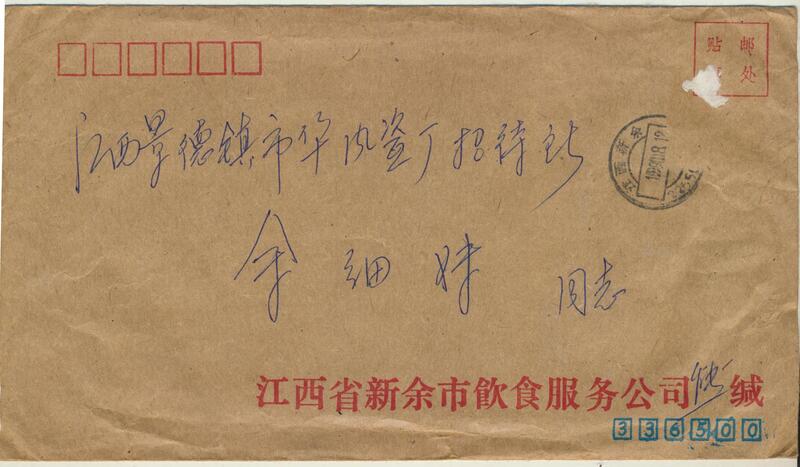 贴 邮
处
江西景德镇市华风瓷厂招待所
江西新余
余细妹 同志
江西省新余市飲食服务公司 缄
336500